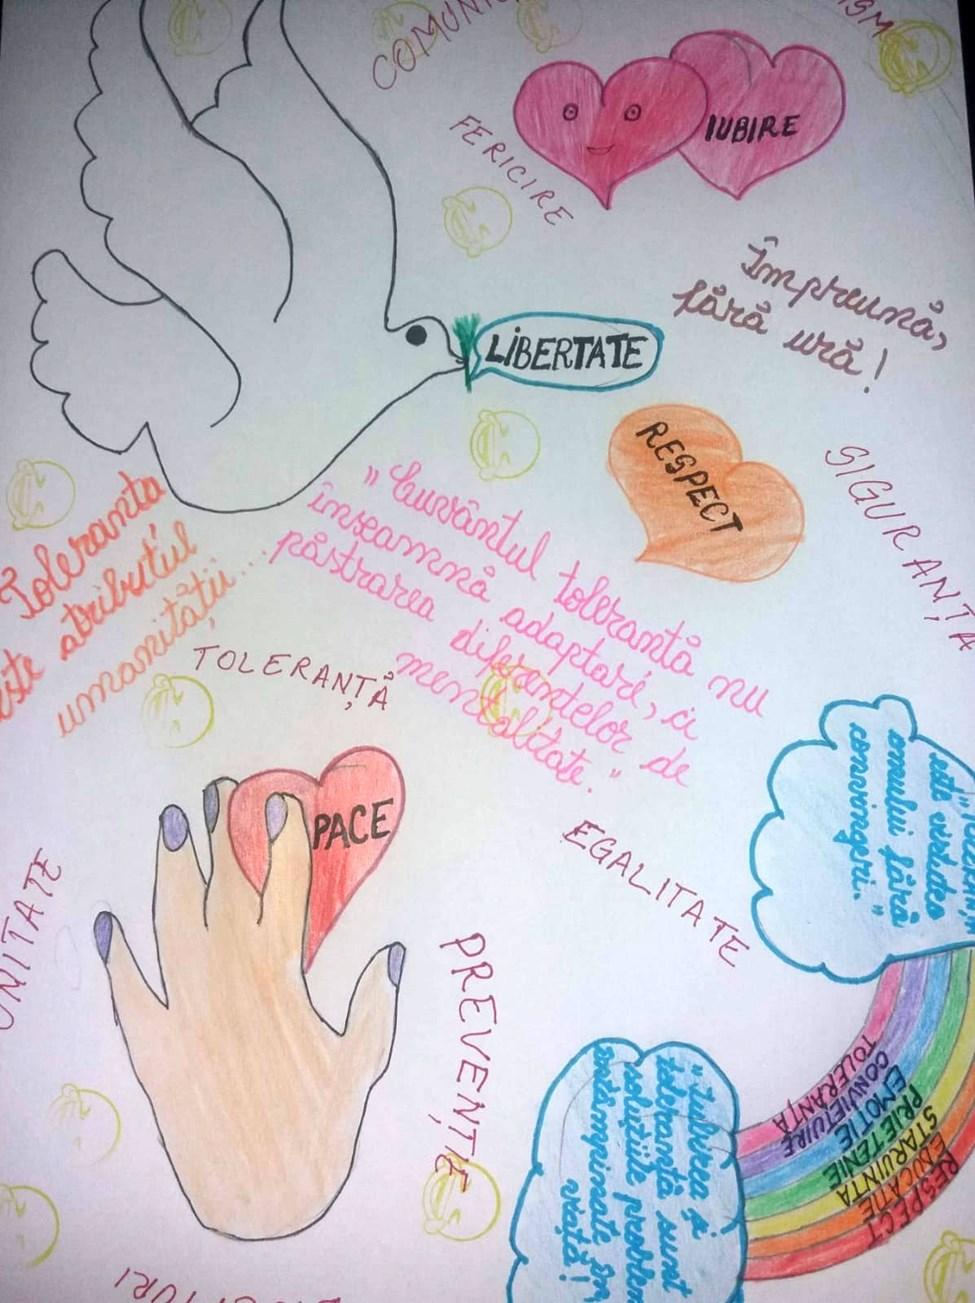 FERICIRE
IUBIRE
Împreună,
fără ură!
LIBERTATE
RESPECT
SIGURANȚA
Toleranta
este atributul
umanității...
„Cuvântul toleranță nu
înseamnă adaptare, ci
păstrarea diferențelor de
mentalitate.”
TOLERANȚĂ
PACE
EGALITATE
PREVENȚIE
este virtutea
omului fără
convingeri."
"Iubirea și
toleranță sunt
soluțiile
întâmpinate în
viață!
TOLERANȚĂ
CONVIEȚUIRE
EMOȚIE
PRIETENIE
STARUINTA
EDUCAȚIE
RESPECT